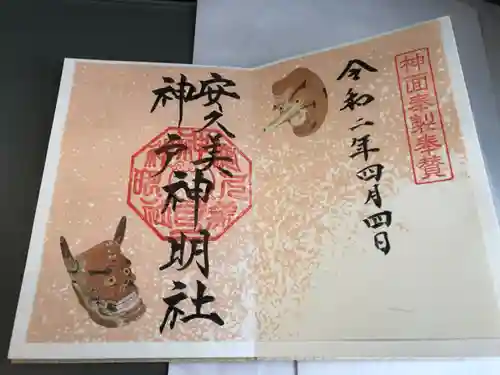 神面奏製奉賛
令和二年四月四日
安久美
神戸神明社